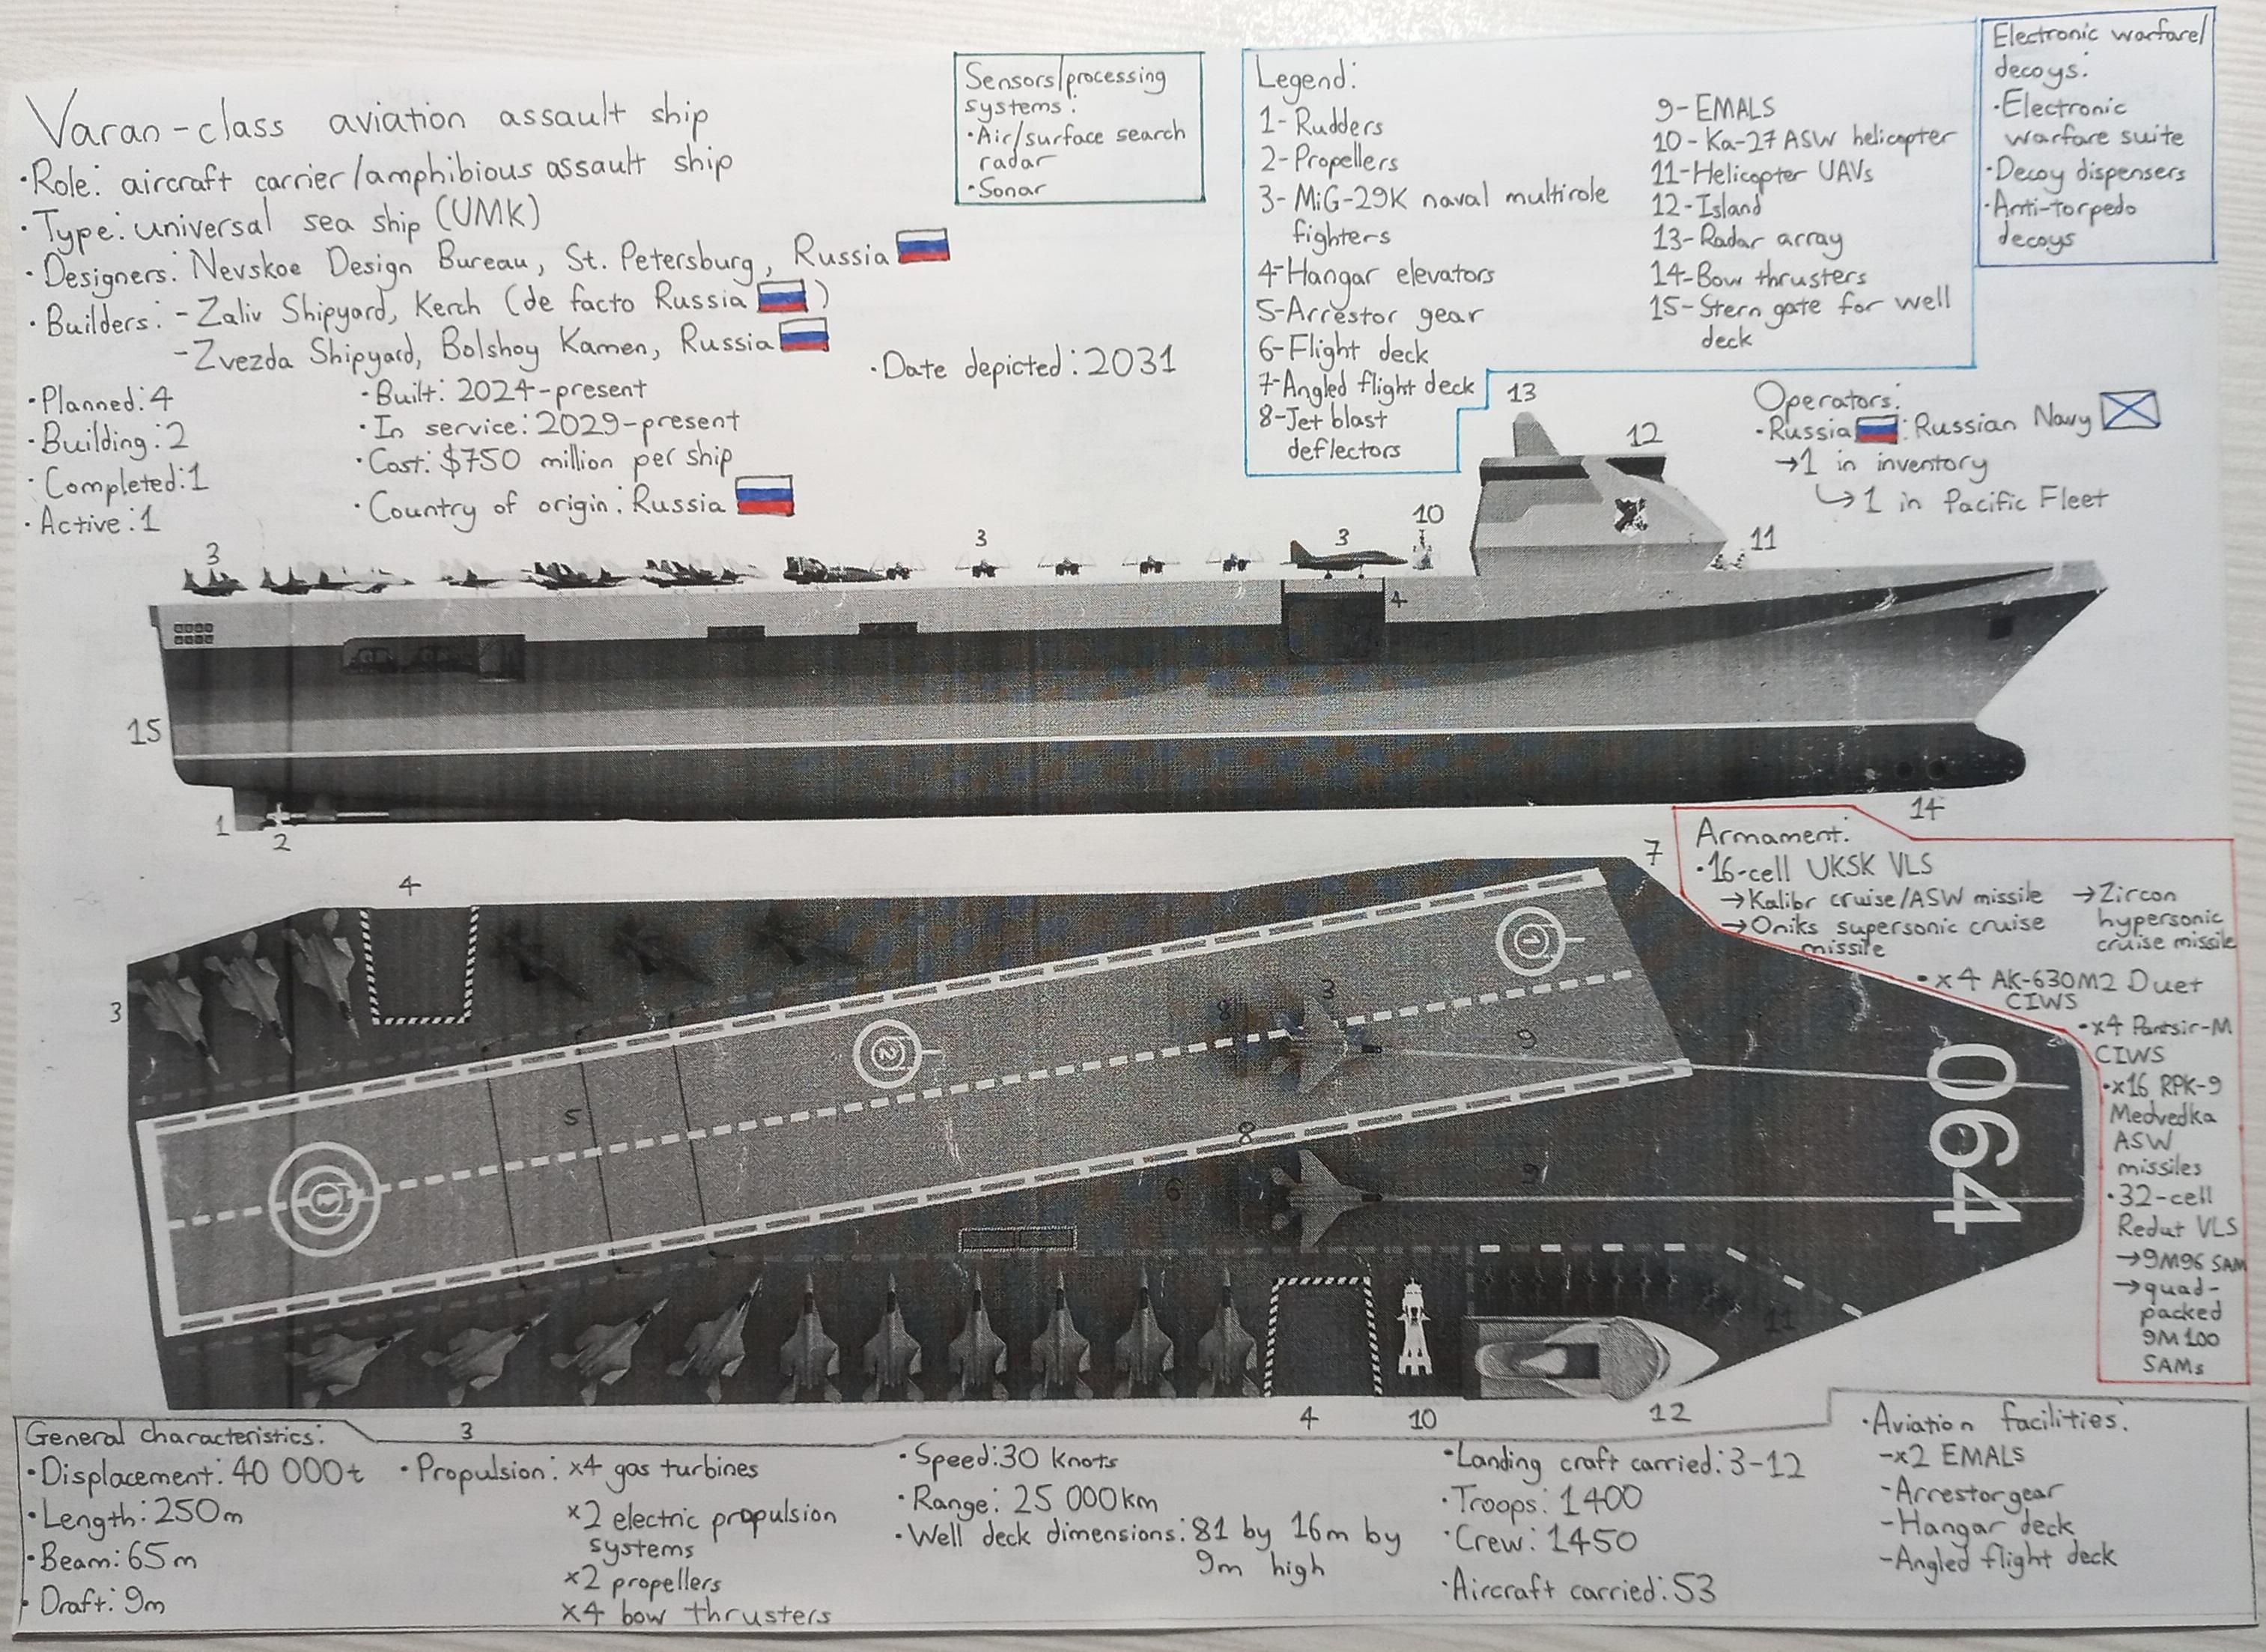 Varan-class aviation assault ship
·Role: aircraft carrier/amphibious assault ship
·Type: universal sea ship (UMK)
·Designers: Nevskoe Design Bureau, St. Petersburg, Russia
·Builders: -Zaliv Shipyard, Kerch (de facto Russia )
-Zvezda Shipyard, Bolshoy Kamen, Russia
·Planned: 4
·Building: 2
·Completed: 1
·Active: 1
·Built: 2024-present
·In service: 2029-present
·Cost: $750 million per ship
·Country of origin: Russia
·Date depicted: 2031
Sensors/processing
systems:
·Air/surface search
radar
·Sonar
Legend:
1-Rudders
2-Propellers
3-MiG-29K naval multirole
fighters
4-Hangar elevators
5-Arrestor gear
6-Flight deck
7-Angled flight deck
8-Jet blast
deflectors
9-EMALS
10-Ka-27 ASW helicopter
11-Helicopter UAVs
12-Island
13-Radar array
14-Bow thrusters
15-Stern gate for well
deck
Electronic warfare/
decoys:
·Electronic
warfare suite
·Decoy dispensers
·Anti-torpedo
decoys
Operators:
·Russia : Russian Navy
→1 in inventory
↳1 in Pacific Fleet
13
12
10
3
3
3
11
4
15
1
2
14
Armament:
·16-cell UKSK VLS
→Kalibr cruise/ASW missile
→Oniks supersonic cruise
missile
→Zircon
hypersonic
cruise missile
·x4 AK-630M2 Duet
CIWS
·x4 Pantsir-M
CIWS
·x16 RPK-9
Medvedka
ASW
missiles
·32-cell
Redut VLS
→9M96 SAM
→quad-
packed
9M100
SAMs
7
4
3
1
8
3
2
9
5
8
6
9
064
11
3
4
10
12
General characteristics:
·Displacement: 40 000t
·Length: 250m
·Beam: 65m
·Draft: 9m
·Propulsion: x4 gas turbines
x2 electric propulsion
systems
x2 propellers
x4 bow thrusters
·Speed: 30 knots
·Range: 25 000km
·Well deck dimensions: 81 by 16m by
9m high
·Landing craft carried: 3-12
·Troops: 1400
·Crew: 1450
·Aircraft carried: 53
·Aviation facilities:
-x2 EMALS
-Arrestor gear
-Hangar deck
-Angled flight deck